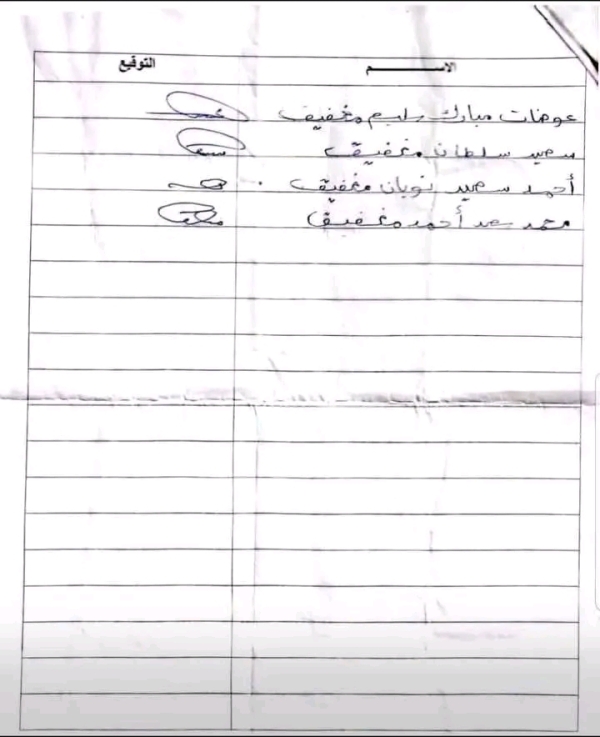 الاســـــم التوقيع
عوضات مبارك سليم مغفيق
سعيد سلطان مغفيق
أحمد سعيد نوبان مغفيق
محمد سعد أحمد مغفيق